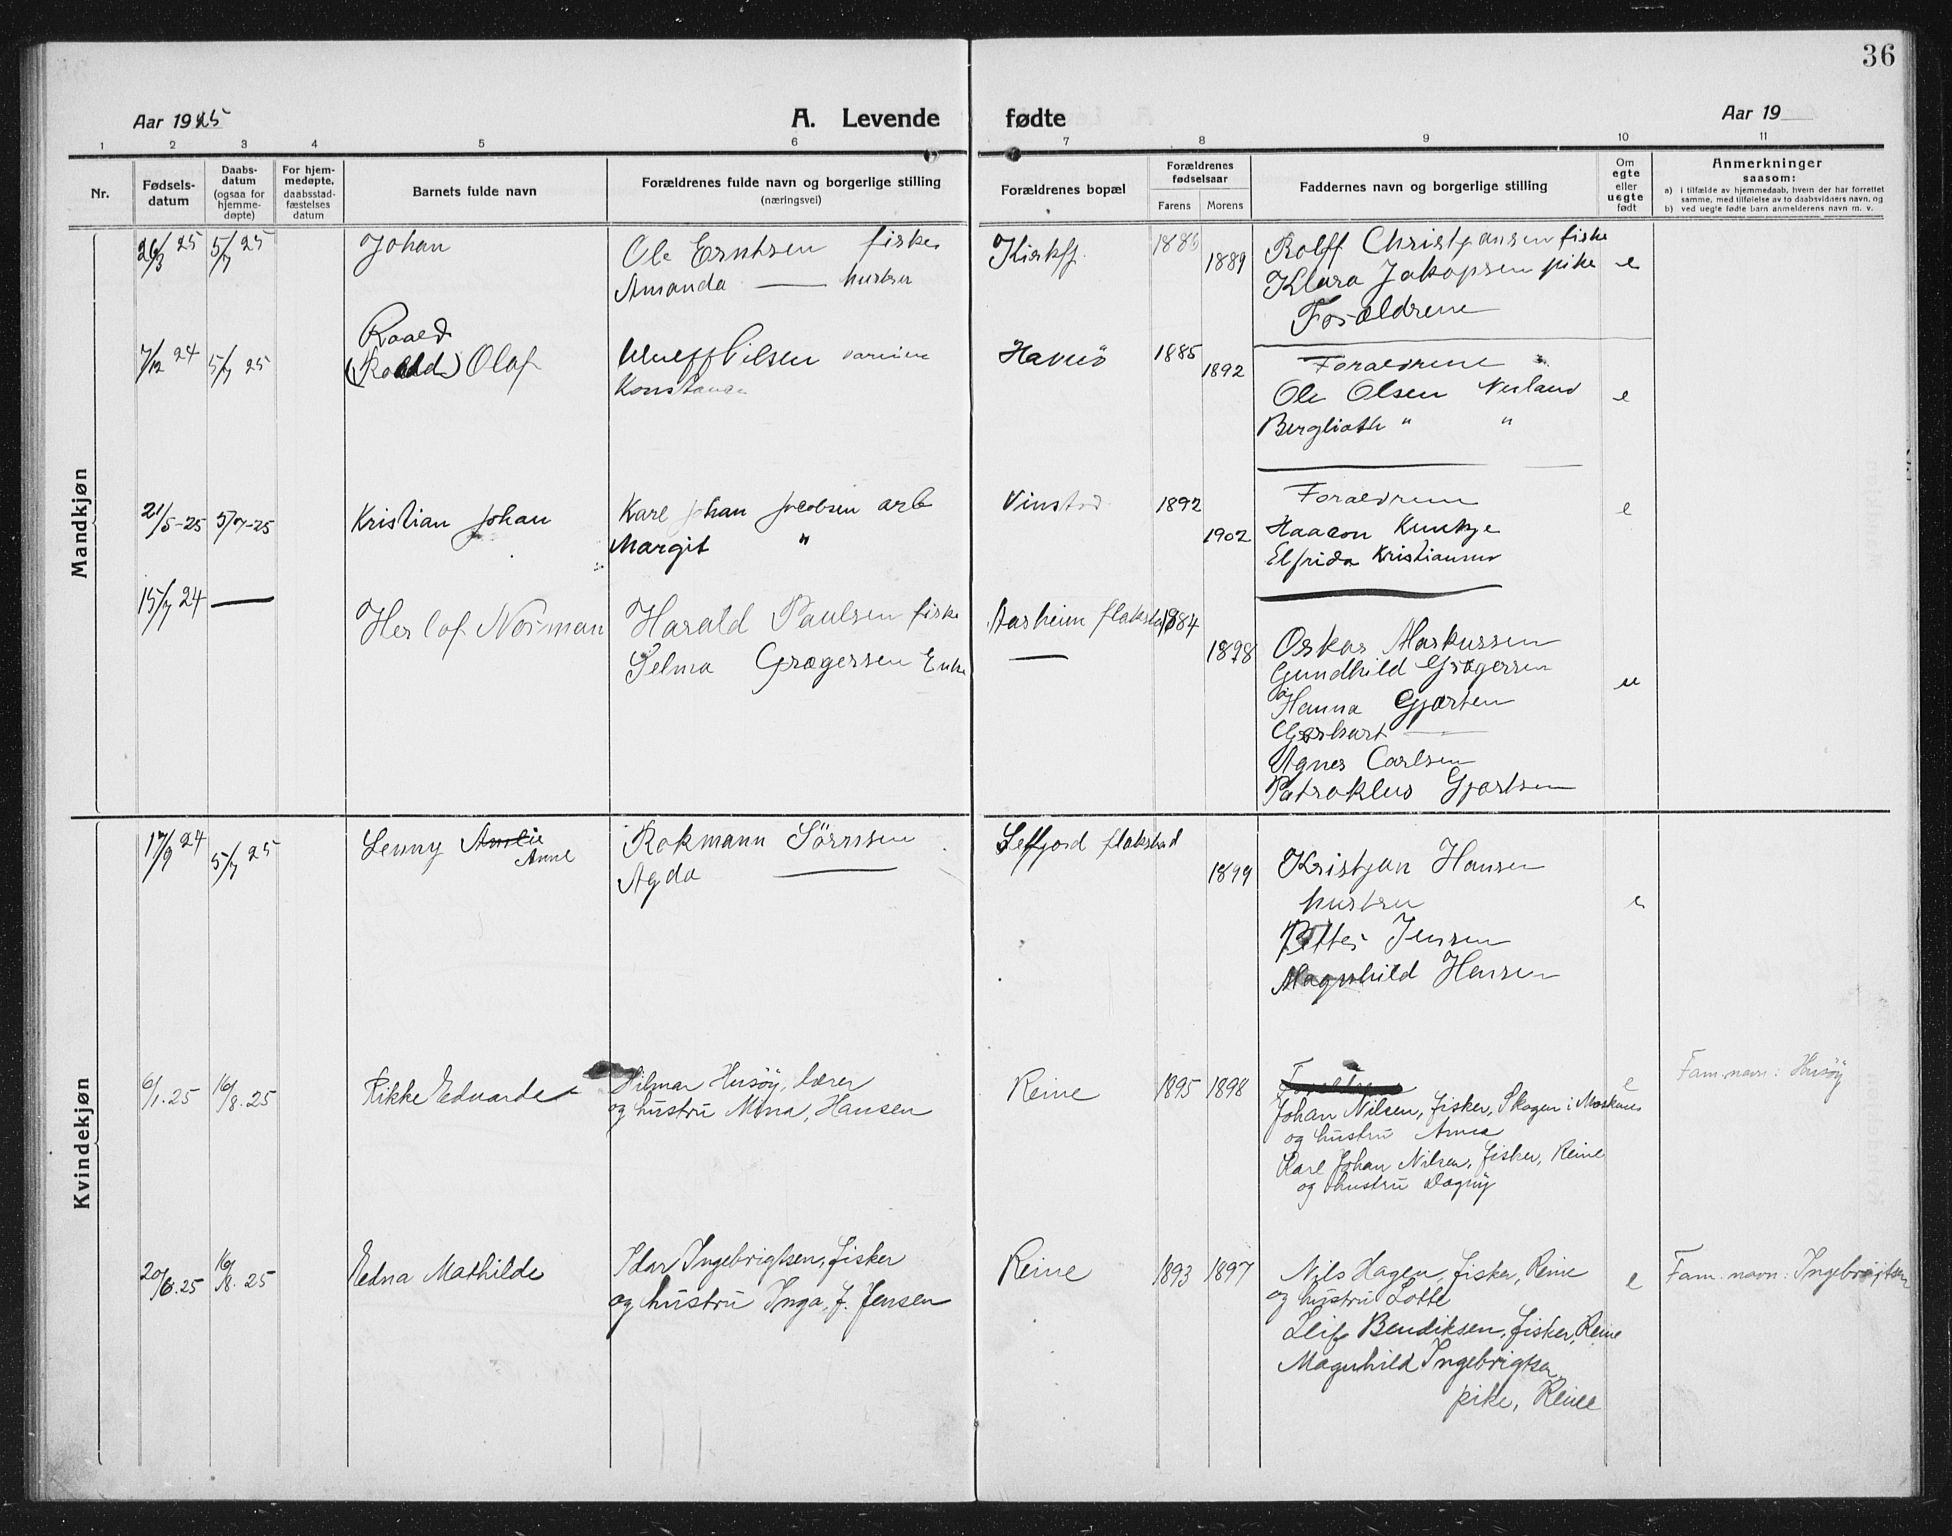 36
Aar 1925
A. Levende fødte
Aar 19
1 2 3 4 5 6 7 8 9 10 11
Nr.
Fødsels-
datum
Daabs-
datum
(ogsaa for
hjemme-
døpte)
For hjem-
medøpte,
daabsstad-
fæstelses
datum
Barnets fulde navn
Forældrenes fulde navn og borgerlige stilling
(næringsvei)
Forældrenes bopæl
Forældrenes
fødselsaar
Farens Morens
Faddernes navn og borgerlige stilling
Om
egte
eller
uegte
født
Anmerkninger
saasom:
a) i tilfælde av hjemmedaab, hvem der har forrettet
samme, med tilføielse av to daabsvidners navn, og
b) ved uegte fødte barn anmelderens navn m. v.
Mandkjøn
26/3 25 5/7 25 Johan Ole Erntsen fisker 1886 Rolff Christjansen fiske
Amanda — hustru 1889 Klara Jakopsen pike e
Forældrene
Roald
7/12 24 5/7 25 (Roald) Olaf 1885 Forældrene
Konstanse 1892 Ole Olsen e
Berglioth " "
21/5-25 5/7-25 Kristian Johan Karl Johan Jacobsen arb Vinstad 1892 Forældrene e
Margit " 1902 Haacon
Elfrida
15/7 24 — Herlof Norman Harald Paulsen fiske Aarheim flakstad 1884
Selma Grægersen Enke — 1898 Oskar Markussen
Gundhild Grægersen
Hanna Gjærtsen u
Gerhart —
Agnes Carlsen
Patroklus Gjærtsen
Kvindekjøn
17/9 24 5/7 25 Lenny Amlie Rokmann Sørnsen Selfjord flakstad
Anne
Agda — 1899 Kristjan Hansen
hustru e
Petter Jensen
Magnhild Hansen
6/1.25 16/8.25 Rikke Edvarde Hilmar Husöy, lærer Reine 1895 1898 Forældrene e Fam. navn: Husöy
og hustru Mina, Hansen
Johan Nilsen, fisker, Skogen i Moskenes
og hustru Anna
Karl Johan Nilsen, fisker, Reine
og hustru Dagny
20/6.25 16/8.25 Edna Mathilde Idar Ingebrigtsen, fisker Reine 1893 1897 Nils Hagen, fisker, Reine e Fam. navn: Ingebrigtsen
og hustru Inga, J. Jensen og hustru Lotte
Leif Bendiksen, fisker, Reine
Magnhild Ingebrigtsen
pike, Reine